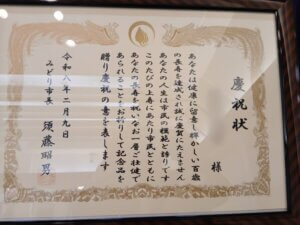 慶祝状
様
あなたは健康に留意し輝かしい百歳
の長寿を達成され誠に慶賀にたえません
あなたの人生は市民の模範と誇りです
このたびの上寿にあたり市民とともに
あなたの長寿を祝いなお一層ご壮健で
あられることをお祈りして記念品を
贈り慶祝の意を表します
令和八年二月九日
みどり市長 須藤昭男